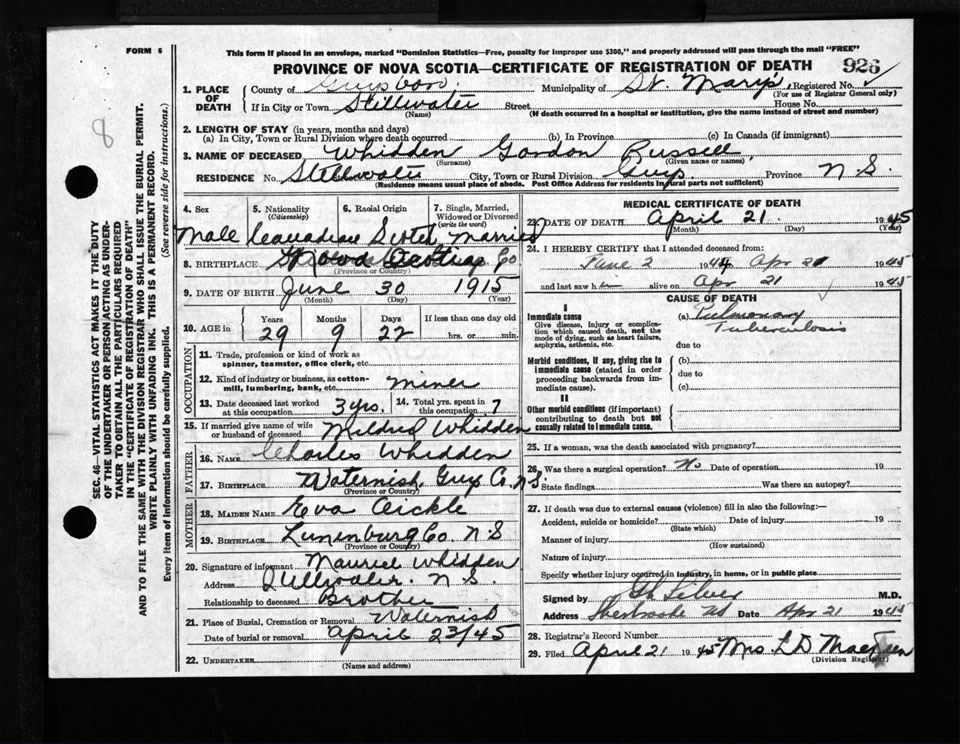 FORM 6
This form if placed in an envelope, marked "Dominion Statistics—Free, penalty for improper use $300," and properly addressed will pass through the mail "FREE"
PROVINCE OF NOVA SCOTIA—CERTIFICATE OF REGISTRATION OF DEATH
926
8
SEC. 46—VITAL STATISTICS ACT MAKES IT THE DUTY
OF THE UNDERTAKER OR PERSON ACTING AS UNDER-
TAKER TO OBTAIN ALL THE PARTICULARS REQUIRED
IN THE "CERTIFICATE OF REGISTRATION OF DEATH"
AND TO FILE THE SAME WITH THE DIVISION REGISTRAR WHO SHALL ISSUE THE BURIAL PERMIT.
WRITE PLAINLY WITH UNFADING INK. THIS IS A PERMANENT RECORD.
Every item of information should be carefully supplied. (See reverse side for instructions.)
1. PLACE OF DEATH
County of Guysboro Municipality of St. Mary's Registered No.
(For use of Registrar General only)
If in City or Town Stillwater Street House No.
(If death occurred in a hospital or institution, give the name instead of street and number)
2. LENGTH OF STAY (in years, months and days)
(a) In City, Town or Rural Division where death occurred (b) In Province (c) In Canada (if immigrant)
3. NAME OF DECEASED Whidden Gordon Russell
(Surname) (Given name or names)
RESIDENCE No. Stillwater City, Town or Rural Division Guys. Province N.S.
(Residence means usual place of abode. Post Office Address for residents in rural parts not sufficient)
4. Sex 5. Nationality (Citizenship) 6. Racial Origin 7. Single, Married, Widowed or Divorced (write the word)
Male Canadian Scotch Married
8. BIRTHPLACE Nova Scotia Co
(Province or Country)
9. DATE OF BIRTH June 30 1915
(Month) (Day) (Year)
10. AGE in Years Months Days If less than one day old
29 9 22 hrs. or min.
OCCUPATION
11. Trade, profession or kind of work as spinner, teamster, office clerk, etc.
12. Kind of industry or business, as cotton-mill, lumbering, bank, etc. miner
13. Date deceased last worked at this occupation 3 yrs. 14. Total yrs. spent in this occupation 7
15. If married give name of wife or husband of deceased Mildred Whidden
FATHER
16. NAME Charles Whidden
17. BIRTHPLACE Waternish, Guys Co. N.S.
(Province or Country)
MOTHER
18. MAIDEN NAME Eva
19. BIRTHPLACE Lunenburg Co. N.S
(Province or Country)
20. Signature of informant Maurice Whidden
Address Stillwater. N.S.
Relationship to deceased Brother
21. Place of Burial, Cremation or Removal Waternish
Date of burial or removal April 23/45
22. UNDERTAKER
(Name and address)
MEDICAL CERTIFICATE OF DEATH
23. DATE OF DEATH April 21 1945
(Month) (Day) (Year)
24. I HEREBY CERTIFY that I attended deceased from:
June 2 1944 Apr 21 1945
and last saw him alive on Apr 21 1945
CAUSE OF DEATH
I
Immediate cause
Give disease, injury or complication which caused death, not the mode of dying, such as heart failure, asphyxia, asthenia, etc.
(a) Pulmonary
Tuberculosis
due to
Morbid conditions, if any, giving rise to immediate cause (stated in order proceeding backwards from immediate cause).
(b)
due to
(c)
II
Other morbid conditions (if important) contributing to death but not causally related to immediate cause.
25. If a woman, was the death associated with pregnancy?
26. Was there a surgical operation? No Date of operation 19
State findings Was there an autopsy?
27. If death was due to external causes (violence) fill in also the following:—
Accident, suicide or homicide? Date of injury 19
(State which)
Manner of injury
(How sustained)
Nature of injury
Specify whether injury occurred in industry, in home, or in public place
Signed by Silver M.D.
Address Sherbrooke NS Date Apr 21 1945
28. Registrar's Record Number
29. Filed April 21 1945 Mrs. L D MacKeen
(Division Registrar)